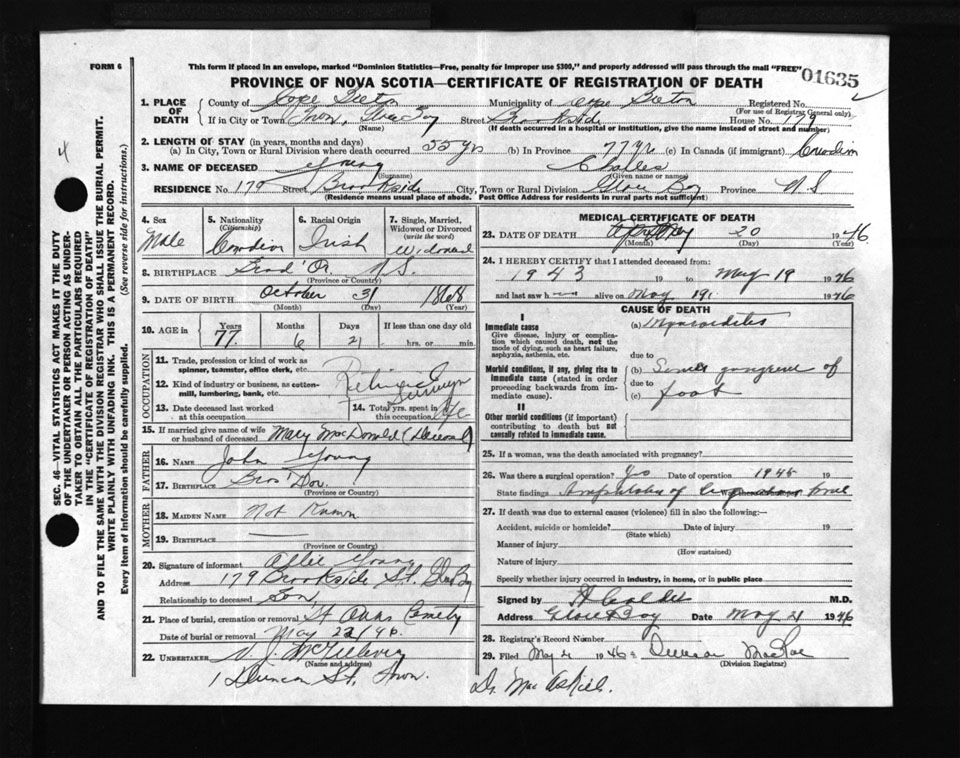 FORM 6
This form if placed in an envelope, marked "Dominion Statistics—Free, penalty for improper use $300," and properly addressed will pass through the mail "FREE"
PROVINCE OF NOVA SCOTIA—CERTIFICATE OF REGISTRATION OF DEATH
01635
2
4
SEC. 46—VITAL STATISTICS ACT MAKES IT THE DUTY OF THE UNDERTAKER OR PERSON ACTING AS UNDERTAKER TO OBTAIN ALL THE PARTICULARS REQUIRED IN THE "CERTIFICATE OF REGISTRATION OF DEATH"
AND TO FILE THE SAME WITH THE DIVISION REGISTRAR WHO SHALL ISSUE THE BURIAL PERMIT.
WRITE PLAINLY WITH UNFADING INK. THIS IS A PERMANENT RECORD.
Every item of information should be carefully supplied. (See reverse side for instructions.)
1. PLACE OF DEATH County of Cape Breton Municipality of Cape Breton Registered No.
(For use of Registrar General only)
If in City or Town Town, Glace Bay Street Brookside House No. 179
(Name) (If death occurred in a hospital or institution, give the name instead of street and number)
2. LENGTH OF STAY (in years, months and days)
(a) In City, Town or Rural Division where death occurred 55 yrs (b) In Province 77 yrs (c) In Canada (if immigrant) Canadian
3. NAME OF DECEASED Young Charles
(Surname) (Given name or names)
RESIDENCE No. 179 Street Brookside City, Town or Rural Division Glace Bay Province N S
(Residence means usual place of abode. Post Office Address for residents in rural parts not sufficient)
4. Sex Male
5. Nationality (Citizenship) Canadian
6. Racial Origin Irish
7. Single, Married, Widowed or Divorced (write the word) Widowed
8. BIRTHPLACE N S.
(Province or Country)
9. DATE OF BIRTH October 31 1868
(Month) (Day) (Year)
10. AGE in Years 77 Months 6 Days 21 If less than one day old hrs. or min.
OCCUPATION
11. Trade, profession or kind of work as spinner, teamster, office clerk, etc.
12. Kind of industry or business, as cotton-mill, lumbering, bank, etc.
Retired
13. Date deceased last worked at this occupation
14. Total yrs. spent in this occupation
15. If married give name of wife or husband of deceased Mary MacDonald (Deceased)
FATHER
16. NAME John Young
17. BIRTHPLACE
(Province or Country)
MOTHER
18. MAIDEN NAME Not Known
19. BIRTHPLACE
(Province or Country)
20. Signature of informant Allie Young
Address 179 Brookside St. Glace Bay
Relationship to deceased Son
21. Place of burial, cremation or removal St Anns Cemetery
Date of burial or removal May 22/46.
22. UNDERTAKER V. J. McGillivray
(Name and address)
1 Duncan St, Town.
MEDICAL CERTIFICATE OF DEATH
23. DATE OF DEATH May 20 1946
(Month) (Day) (Year)
24. I HEREBY CERTIFY that I attended deceased from:
1943 19 to May 19 1946
and last saw him alive on May 19 1946
CAUSE OF DEATH
I
Immediate cause
Give disease, injury or complication which caused death, not the mode of dying, such as heart failure, asphyxia, asthenia, etc.
(a) Myocarditis
due to
Morbid conditions, if any, giving rise to immediate cause (stated in order proceeding backwards from immediate).
(b) Senile gangrene of
due to
(c) foot
II
Other morbid conditions (if important) contributing to death but not causally related to immediate cause.
25. If a woman, was the death associated with pregnancy?
26. Was there a surgical operation? Yes Date of operation 1945 19
State findings Amputation of
27. If death was due to external causes (violence) fill in also the following:—
Accident, suicide or homicide? Date of injury 19
(State which)
Manner of injury
(How sustained)
Nature of injury
Specify whether injury occurred in industry, in home, or in public place
Signed by M.D.
Address Glace Bay Date May 21 1946
28. Registrar's Record Number
29. Filed May 21 1946 Duncan MacRae
(Division Registrar)
Dr. MacAskill.